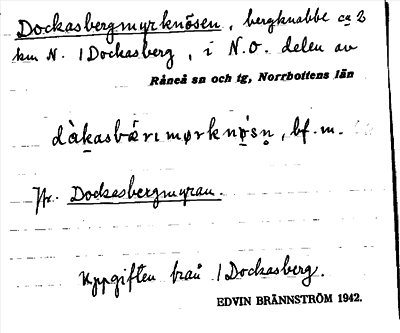 Dockasbergmyrknösen, bergknabbe ca 3
km N. /Dockasberg, i N.O. delen av
Råneå sn och tg, Norrbottens län
dàkasbærɩmørknø̀sn̥, bf. m.
Jfr. Dockasbergmyran.
Uppgiften från /Dockasberg.
EDVIN BRÄNNSTRÖM 1942.